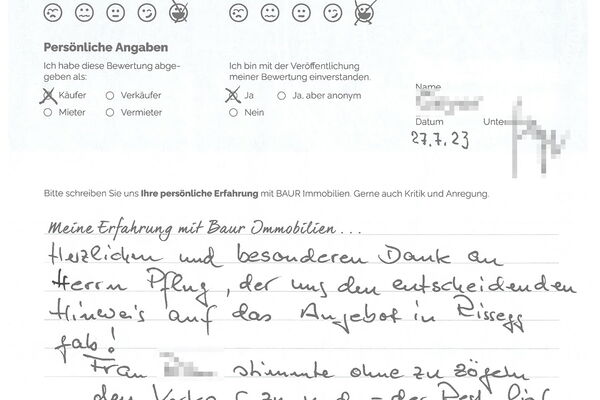 Persönliche Angaben
Ich habe diese Bewertung abge-
geben als:
Käufer
Verkäufer
Mieter
Vermieter
Ich bin mit der Veröffentlichung
meiner Bewertung einverstanden.
Ja
Ja, aber anonym
Nein
Name
Datum
Unter
27.7.23
Bitte schreiben Sie uns Ihre persönliche Erfahrung mit BAUR Immobilien. Gerne auch Kritik und Anregung.
Meine Erfahrung mit Baur Immobilien...
Herzlichen und besonderen Dank an
Herrn Pflug, der uns den entscheidenden
Hinweis auf das Angebot in Rissegg
gab!
Frau stimmte ohne zu zögern
den zu und - der Rest lief